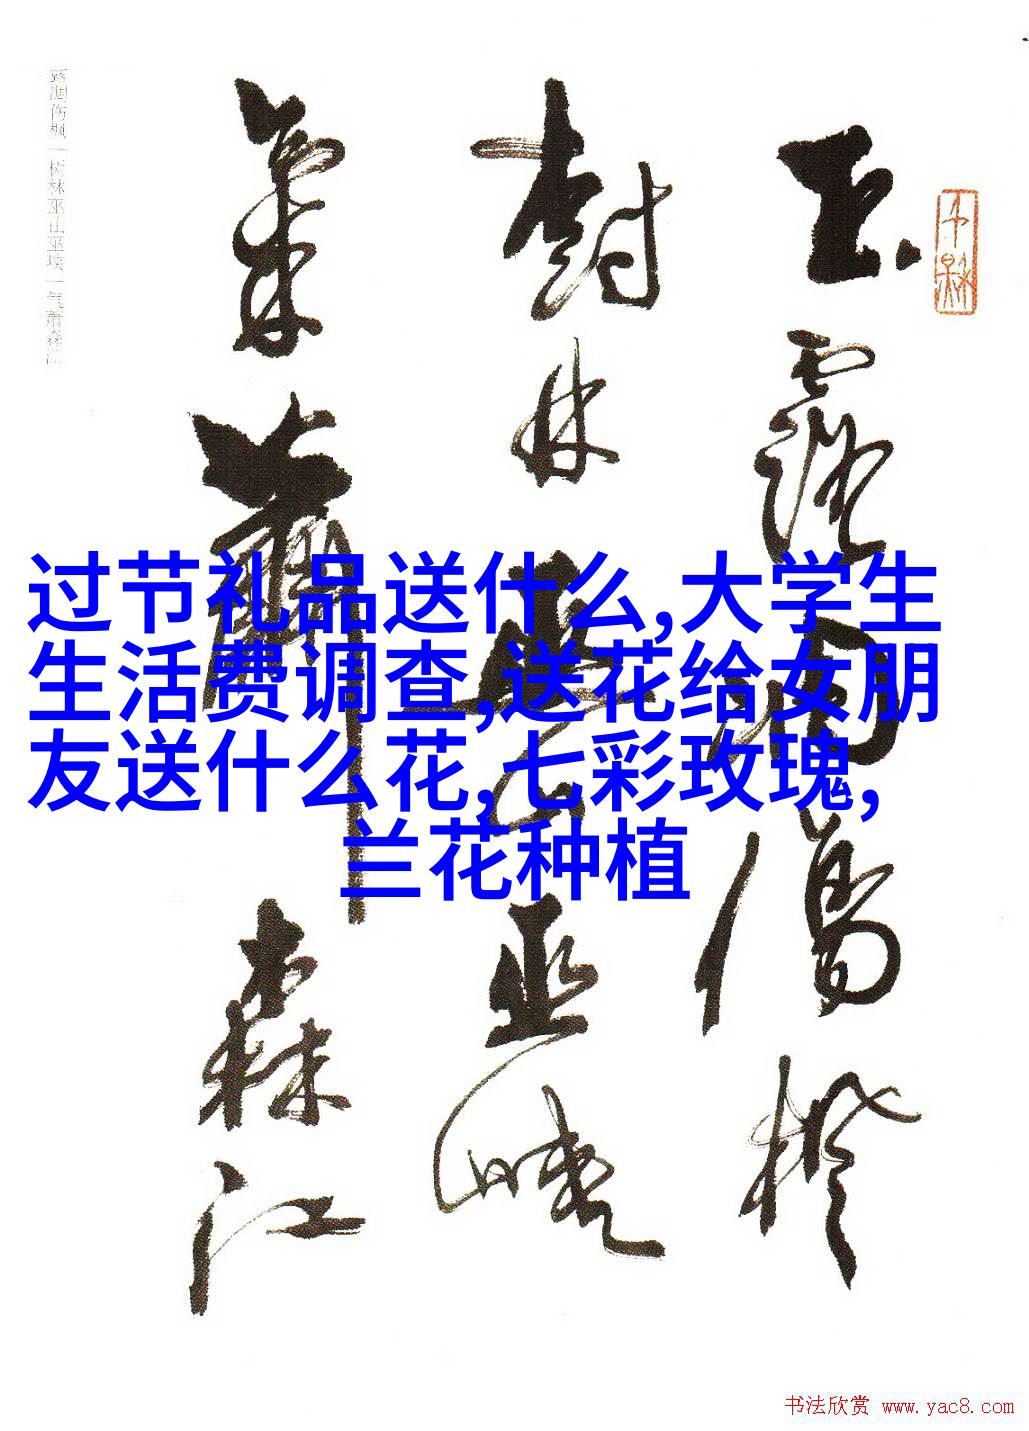 玉露凋傷楓
樹林巫山巫峽
氣蕭森江
过节礼品送什么,大学生
生活费调查,送花给女朋
友送什么花,七彩玫瑰,
兰花种植
书法欣赏 www.yac8.com